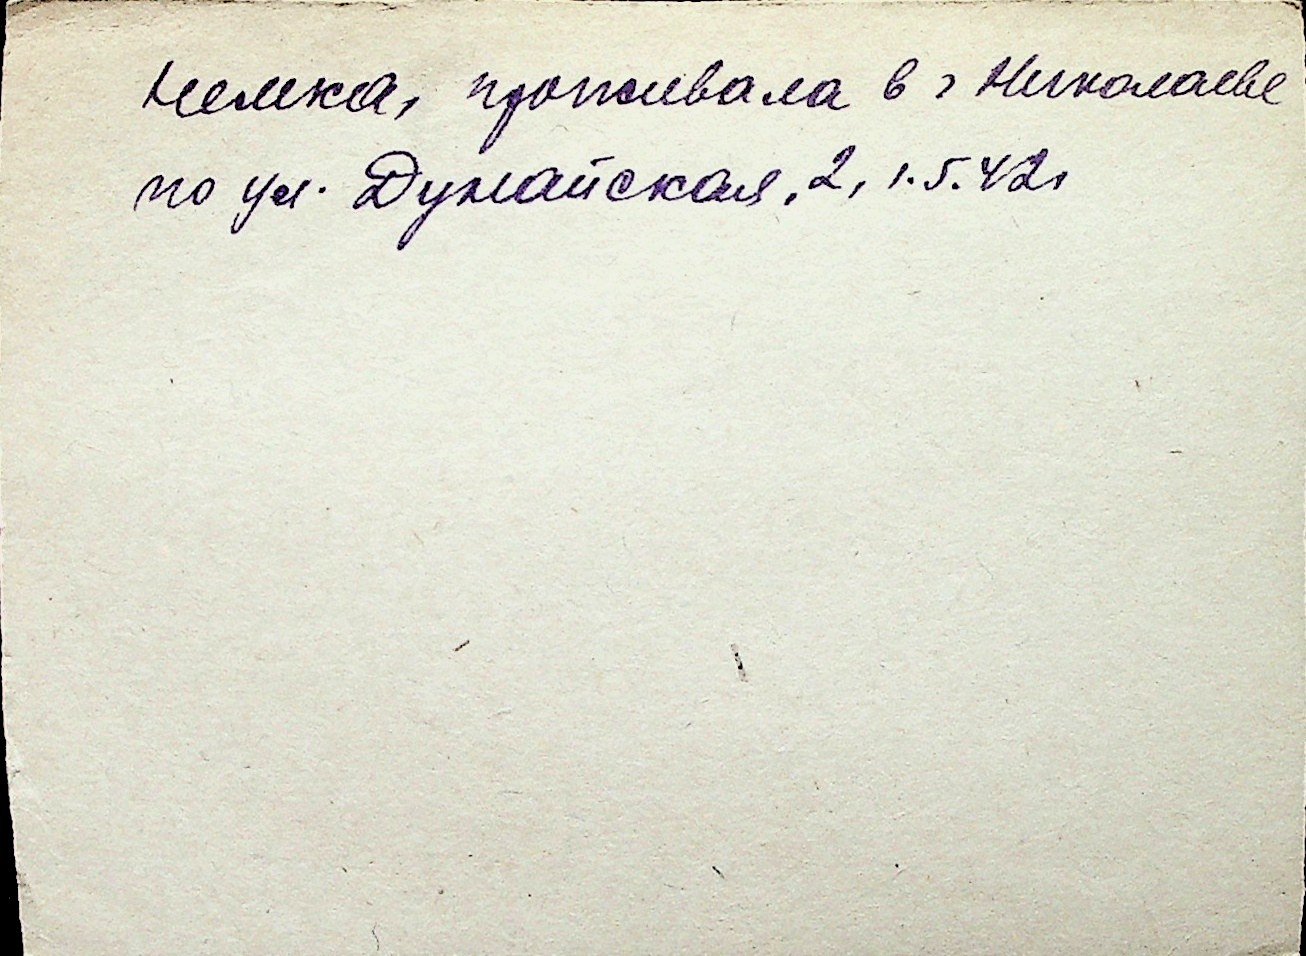 Немка, проживала в г Николаеве
по ул. Дунайская, 2, 1.5.42г